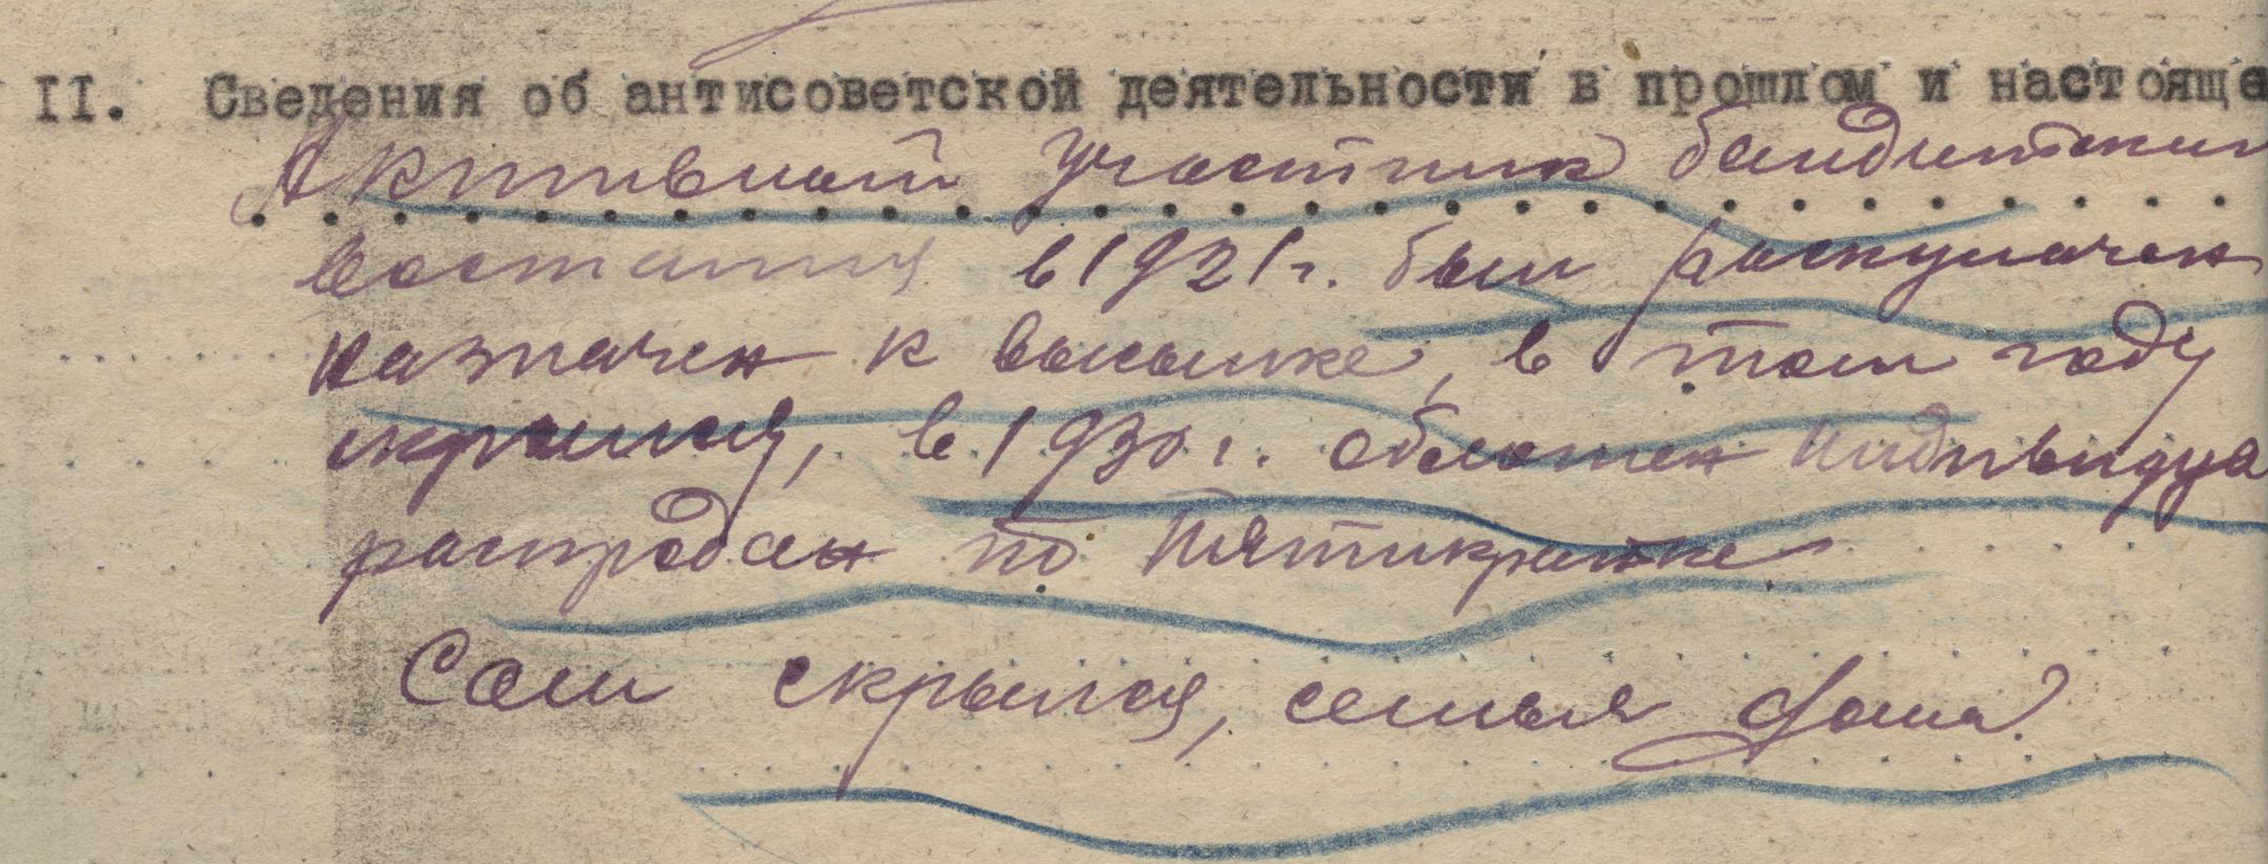 II. Сведения об антисоветской деятельности в прошлом и настояще
Активный участник бандитских
востания в 1921 г. был раскулачен
назначен к высылке, в том году
скрылся, в 1930 г. обложен индивидуа
распродан по пятикратке
Сам скрылся, семья дома.